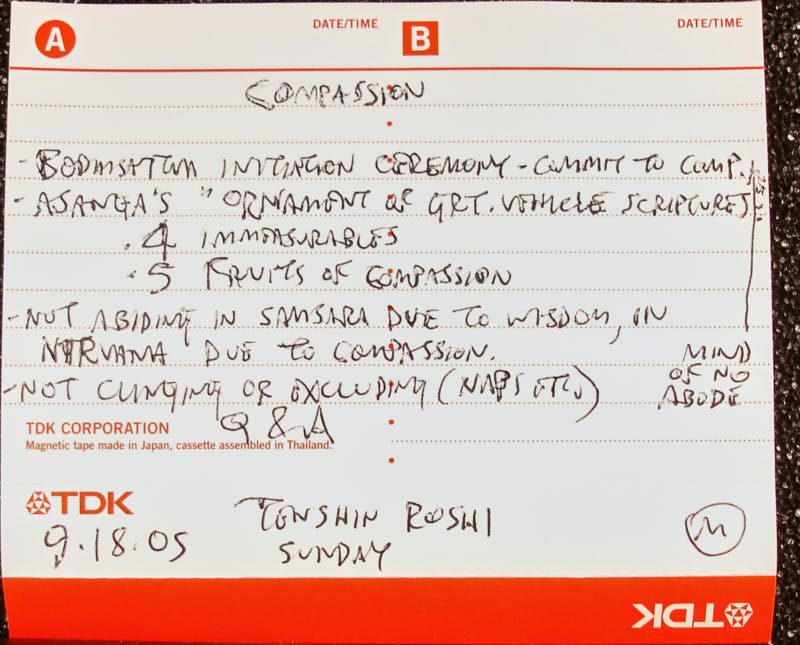 A DATE/TIME B DATE/TIME
COMPASSION
- BODHISATTVA INITIATION CEREMONY - COMMIT TO COMP.
- ASANGA'S "ORNAMENT OF GRT. VEHICLE SCRIPTURES"
. 4 IMMEASURABLES
. 5 FRUITS OF COMPASSION
- NOT ABIDING IN SAMSARA DUE TO WISDOM, IN
NIRVANA DUE TO COMPASSION.
MIND
OF NO
ABODE
- NOT CLINGING OR EXCLUDING (NAPS ETC.)
Q & A
TDK CORPORATION
Magnetic tape made in Japan, cassette assembled in Thailand.
TDK
9.18.05
TENSHIN ROSHI
SUNDAY
M
TDK